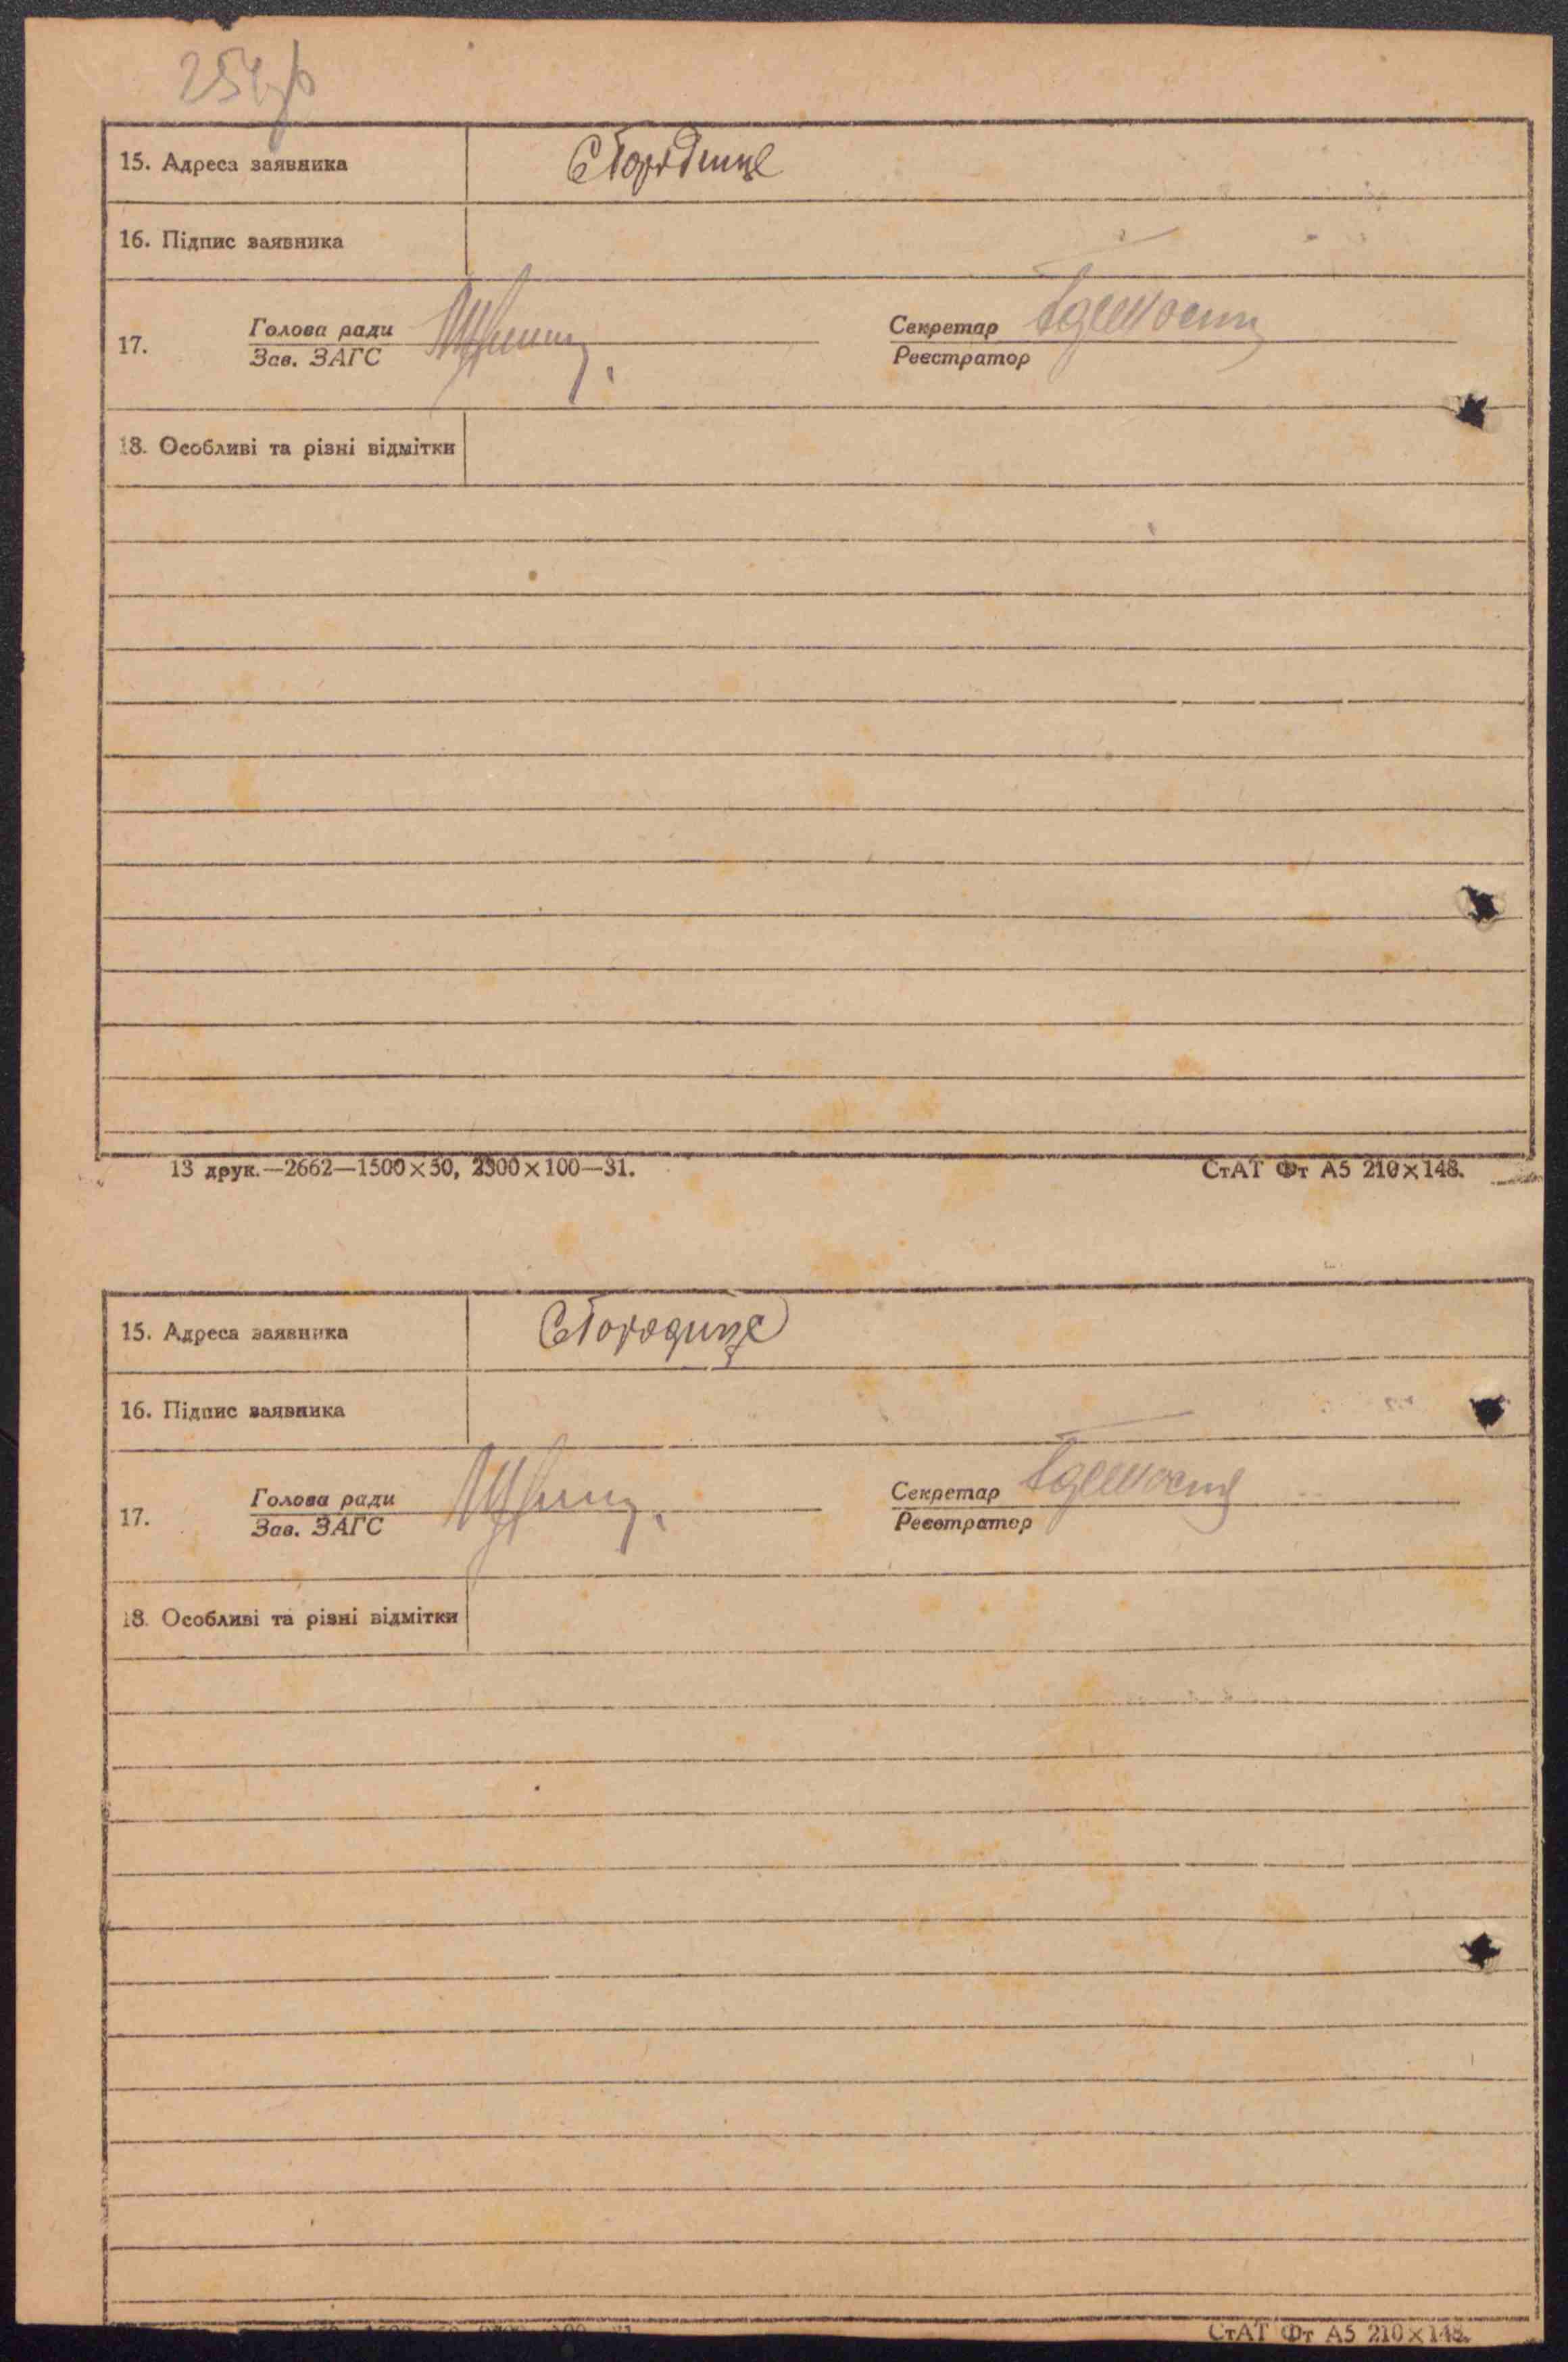 15. Адреса заявника С Городище
16. Підпис заявника
17. Голова ради Секретар
Зав. ЗАГС Реєстратор
18. Особливі та різні відмітки
13 друк.—2662—1500×50, 2300×100—31. СтАТ Фт А5 210×148.
15. Адреса заявника С Городище
16. Підпис заявника
17. Голова ради Секретар
Зав. ЗАГС Реєстратор
18. Особливі та різні відмітки
СтАТ Фт А5 210×148.